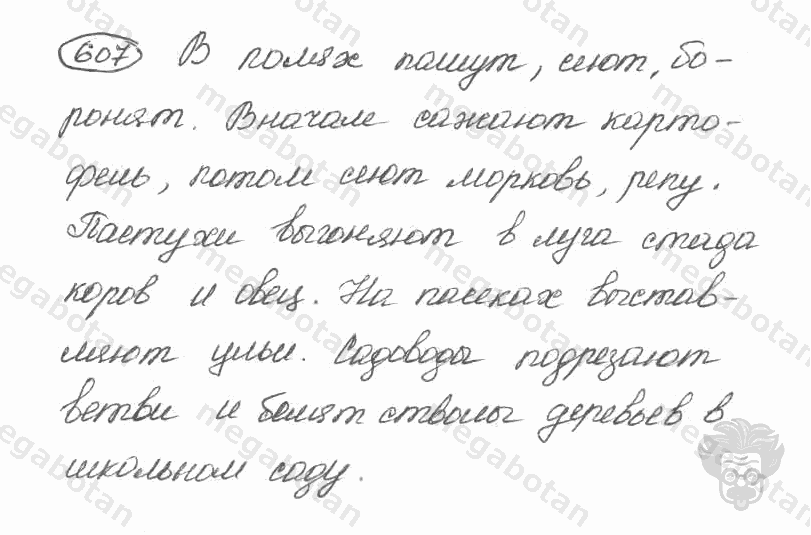 607 В полях пашут, сеют, бо-
ронят. Вначале сажают карто-
фель, потом сеют морковь, репу.
Пастухи выгоняют в луга стада
коров и овец. На пасеках выстав-
ляют ульи. Садоводы подрезают
ветви и белят стволы деревьев в
школьном саду.